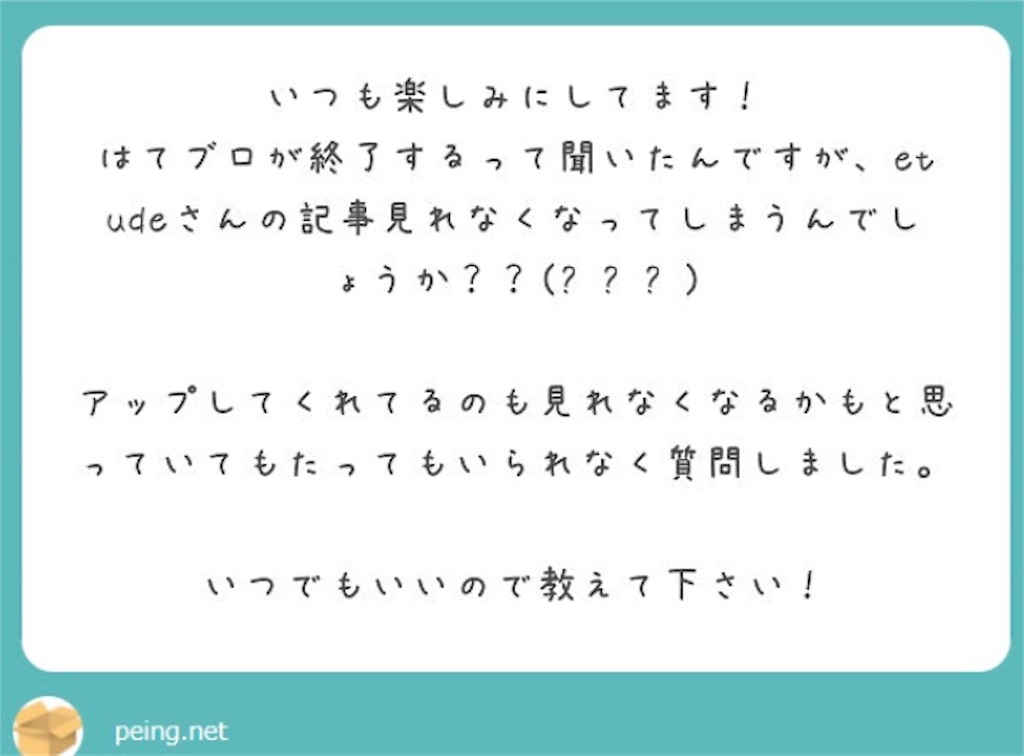 いつも楽しみにしてます！
はてブロが終了するって聞いたんですが、et
udeさんの記事見れなくなってしまうんでし
ょうか？？(? ? ? )
アップしてくれてるのも見れなくなるかもと思
っていてもたってもいられなく質問しました。
いつでもいいので教えて下さい！
peing.net